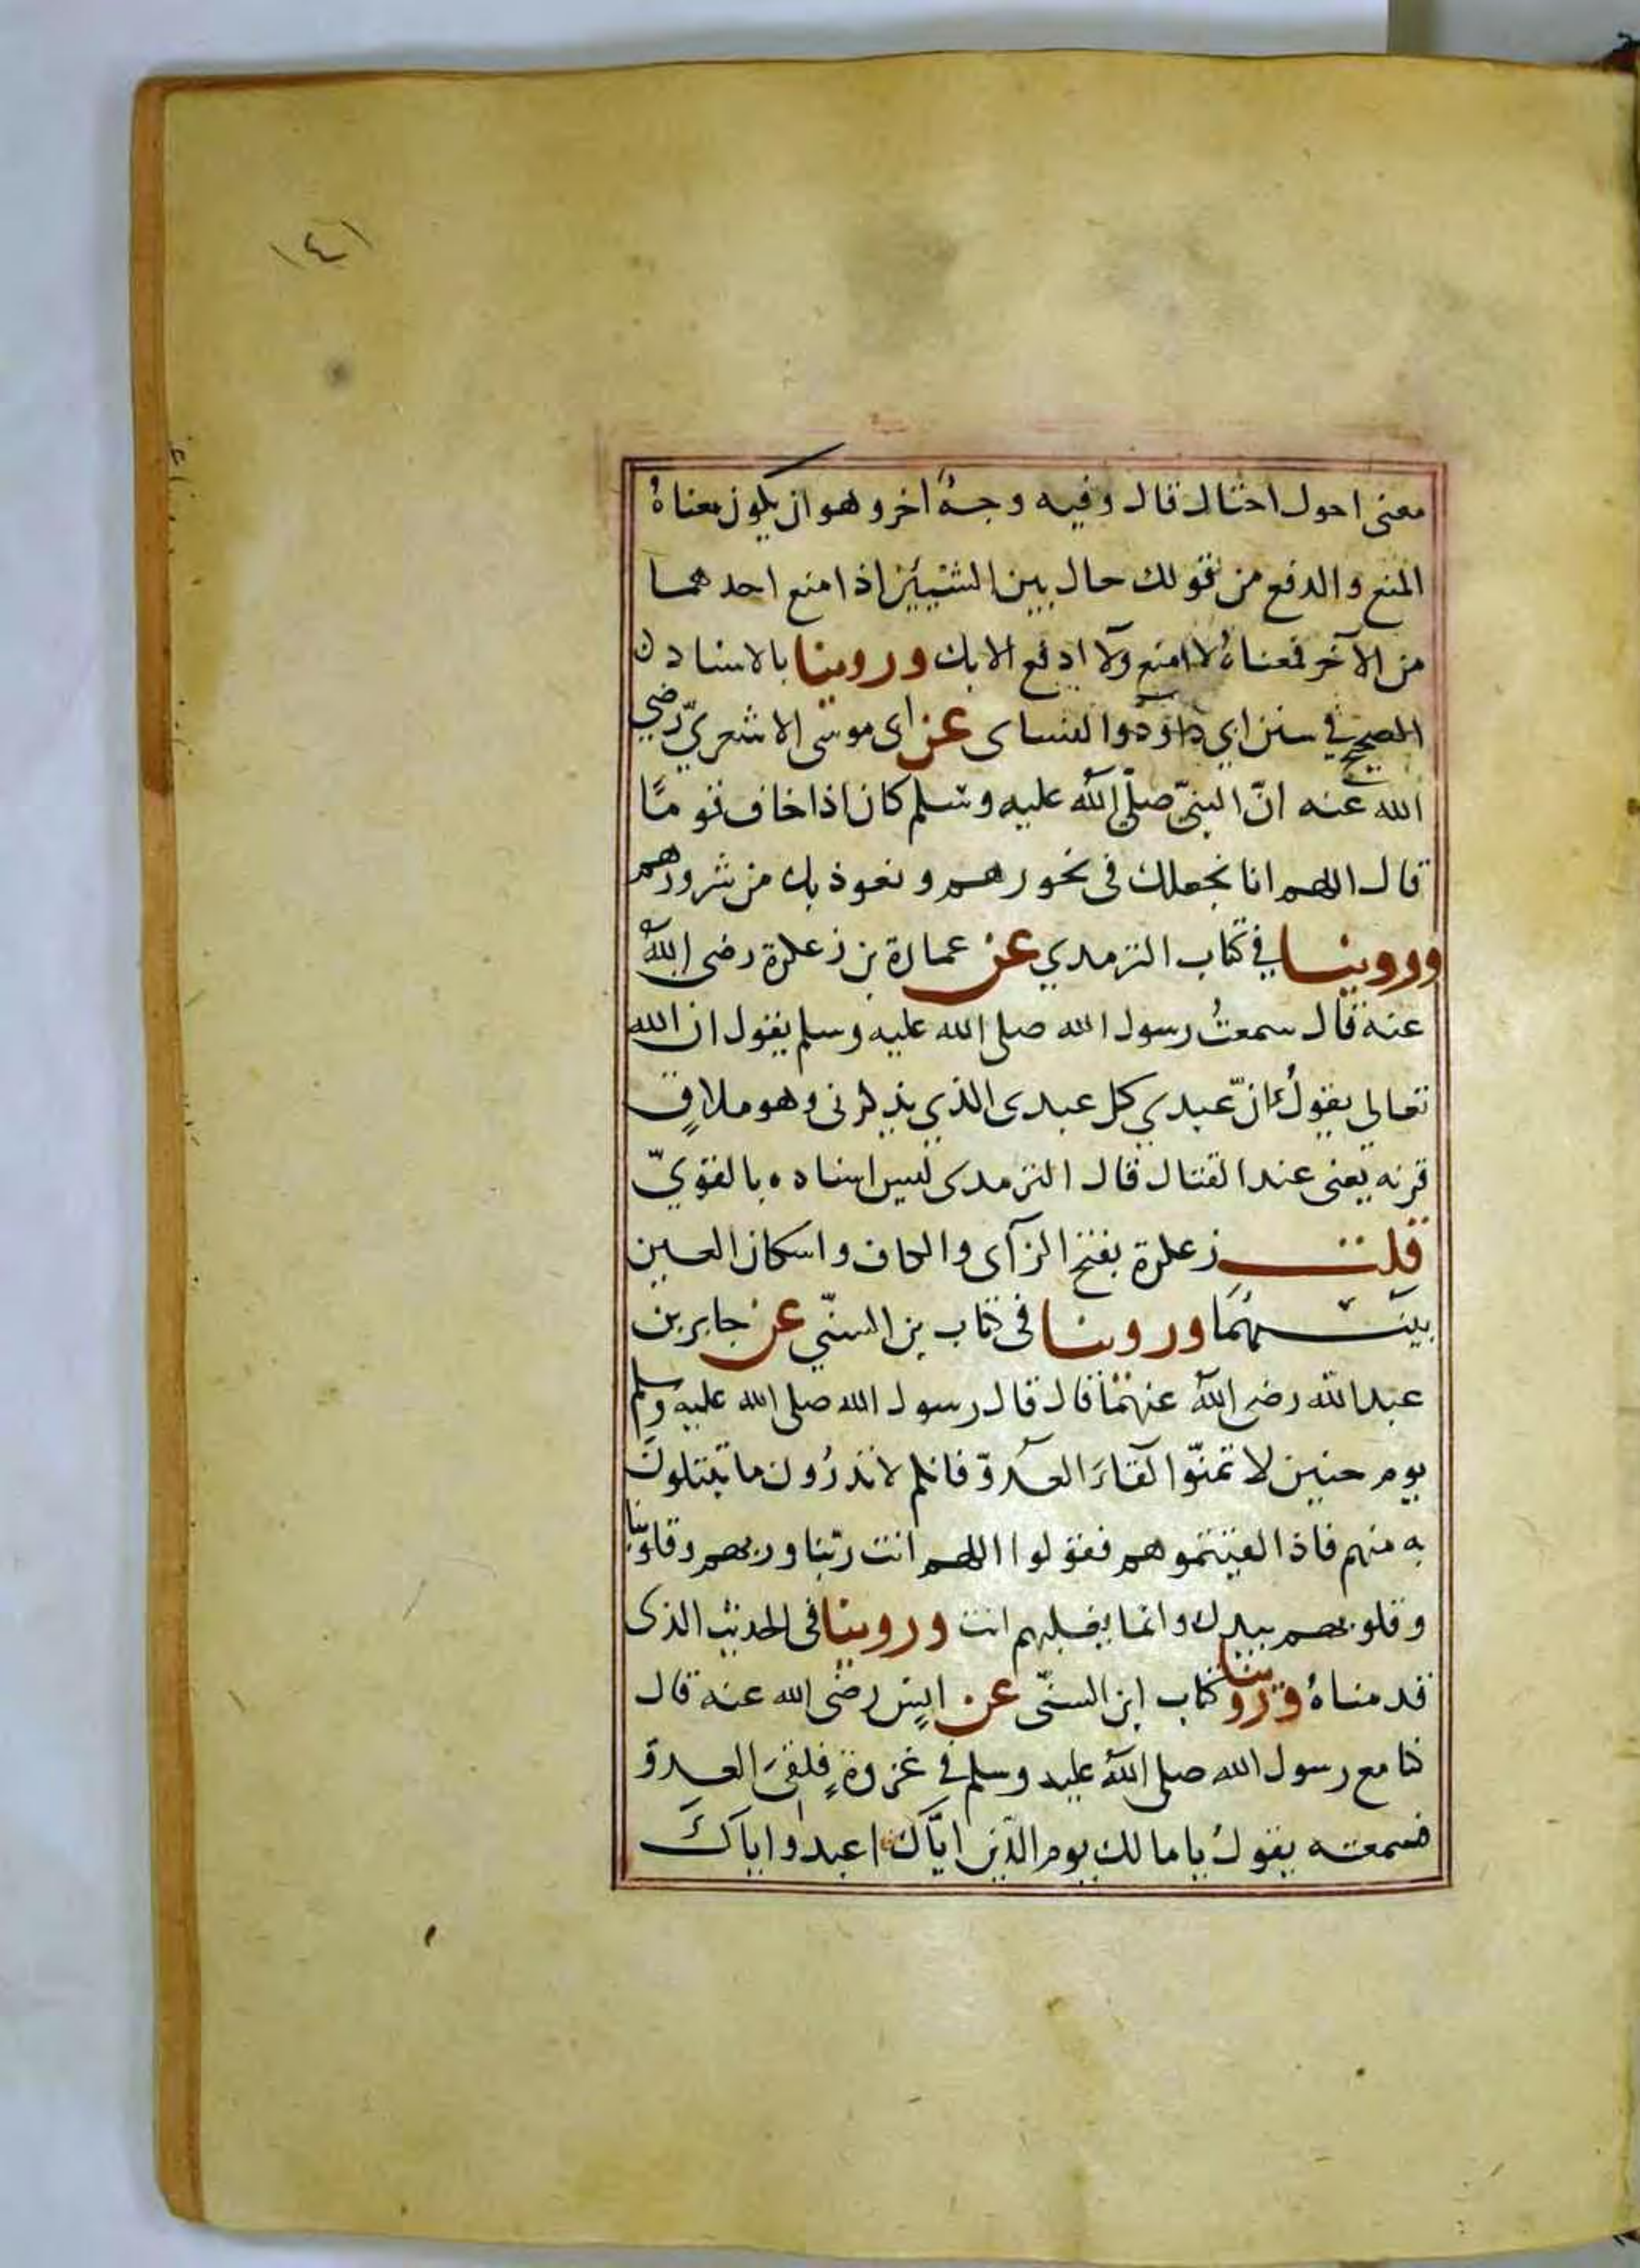 ١٤١
معنى احول احتال قال وفيه وجهٌ اخر وهو ان يكون معناهُ
المنع والدفع من قولك حال بين الشيئين اذا منع احدهما
من الآخر فمعناهُ لا امنع ولا ادفع الا بك وروينا بالاسناد
الصحيح في سنن ابي داوٗد والنساى عن ابى موسى الاشعريّ رضي
الله عنه انّ النبيّ صلّى اللّٰه عليه وسلم كان اذا خاف قومًا
قال اللهم انا نجعلك فى نحورهم ونعوذ بك من شرورهم
وروينا في كتاب الترمدي عن عمارة بن زعكرة رضى اللهُ
عنه قال سمعتُ رسول الله صلى الله عليه وسلم يقول ان الله
تعالى يقولُ انّ عبدي كل عبدى الذي يذكرنى وهو ملاقٍ
قرنه يعنى عند القتال قال الترمدى ليس اسناده بالقويّ
قلت زعكرة بفتح الزآى والكاف واسكان العين
بينَهُمَا وروينا فى كتاب بن السنّي عن جابر بن
عبد الله رضى اللهُ عنهُمَا قال قال رسول الله صلى الله عليه وسلم
يوم حنين لا تمنّوا لقاءَ العدوّ فانكم لا تدرُون ما تبتلونَ
به منهم فاذا لقيتموهم فقولوا اللهم انت ربّنا وربهم وقلوبنا
وقلوبهم بيدك وانما يغلبهم انت وروينا فى الحديث الذى
قدمناهُ وروينا كتاب ابن السنّى عن انسٍ رضى الله عنه قال
كنا مع رسول الله صلى اللهُ عليه وسلم فى غزوةٍ فلقىَ العدوّ
فسمعته يقولُ يا مالك يوم الدّين ايّاكَ اعبد وايّاكَ